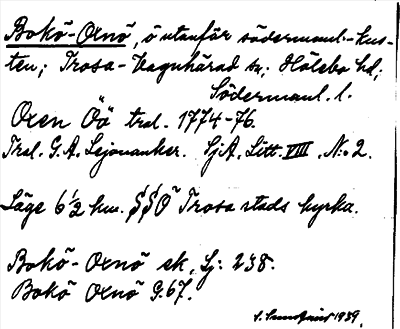 Bokö-Oxnö, ö utanför södermanl.-kus-
ten; Trosa-Vagnhärad sn; Hölebo hd;
Södermanl. l.
Oxen Öö tral. 1774-76.
Tral. G.A. Lejonanker. SjA. Litt. VIII. N:o 2.
Läge 6 1/2 km. SSO Trosa stads kyrka.
Bokö-Oxnö ek, Sj: 238.
Bokö Oxnö G.67.
1939.